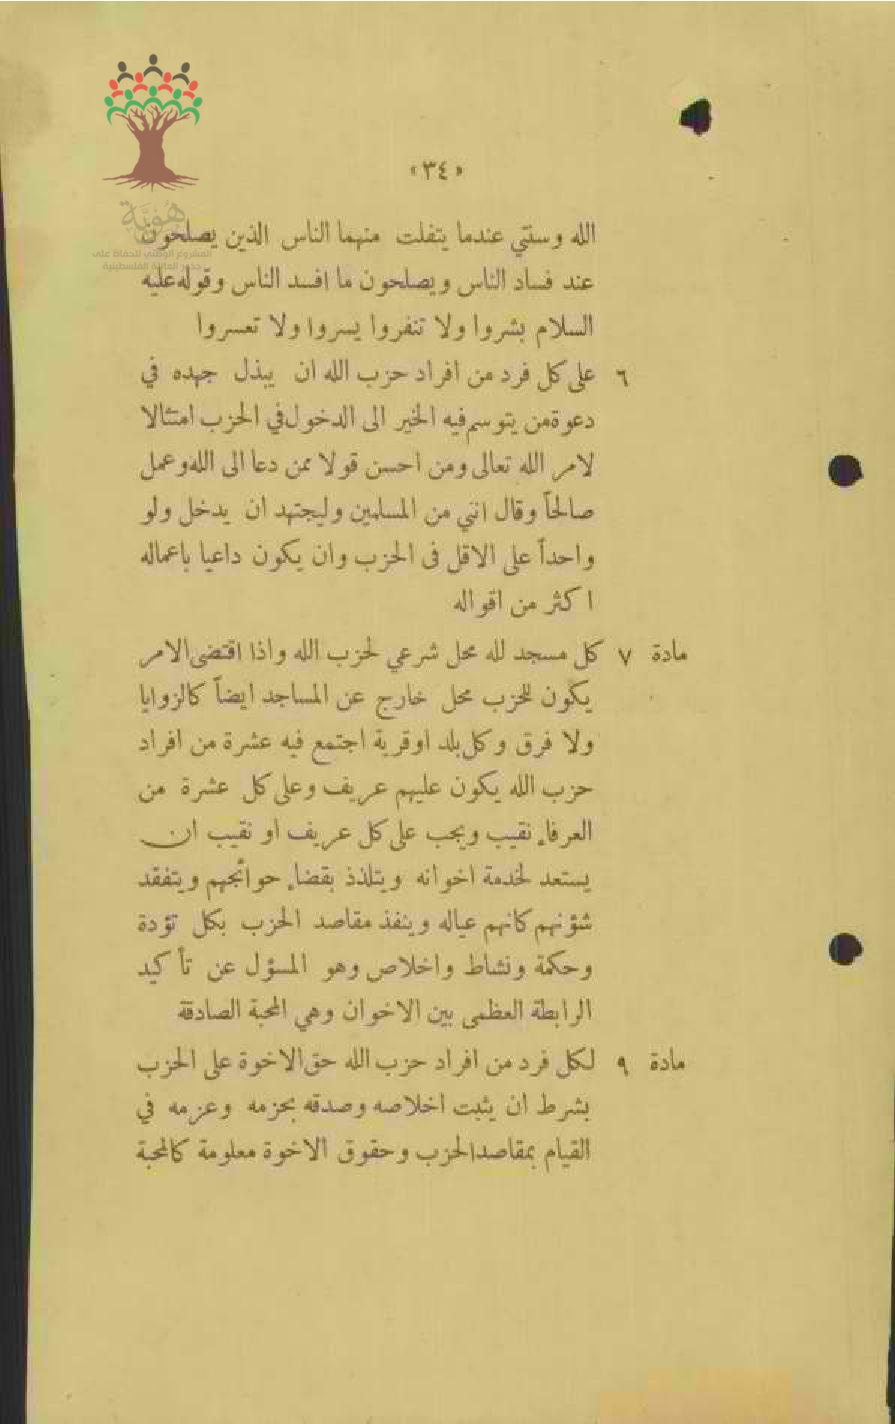 «٣٤»
هُوِيَّة
المشروع الوطني للحفاظ على
جذور العائلة الفلسطينية
الله وسنتي عندما يتفلت منهما الناس الذين يصلحون
عند فساد الناس ويصلحون ما افسد الناس وقوله عليه
السلام بشروا ولا تنفروا يسروا ولا تعسروا
٦ على كل فرد من افراد حزب الله ان يبذل جهده في
دعوة من يتوسم فيه الخير الى الدخول في الحزب امتثالا
لامر الله تعالى ومن احسن قولا ممن دعا الى الله وعمل
صالحاً وقال انني من المسلمين وليجتهد ان يدخل ولو
واحداً على الاقل فى الحزب وان يكون داعيا باعماله
اكثر من اقواله
مادة ٧ كل مسجد لله محل شرعي لحزب الله واذا اقتضى الامر
يكون للحزب محل خارج عن المساجد ايضاً كالزوايا
ولا فرق وكل بلد او قرية اجتمع فيه عشرة من افراد
حزب الله يكون عليهم عريف وعلى كل عشرة من
العرفاء نقيب ويجب على كل عريف او نقيب ان
يستعد لخدمة اخوانه ويتلذذ بقضاء حوائجهم ويتفقد
شؤنهم كانهم عياله وينفذ مقاصد الحزب بكل تؤدة
وحكمة ونشاط واخلاص وهو المسؤل عن تأكيد
الرابطة العظمى بين الاخوان وهي المحبة الصادقة
مادة ٩ لكل فرد من افراد حزب الله حق الاخوة على الحزب
بشرط ان يثبت اخلاصه وصدقه بحزمه وعزمه في
القيام بمقاصد الحزب وحقوق الاخوة معلومة كالمحبة